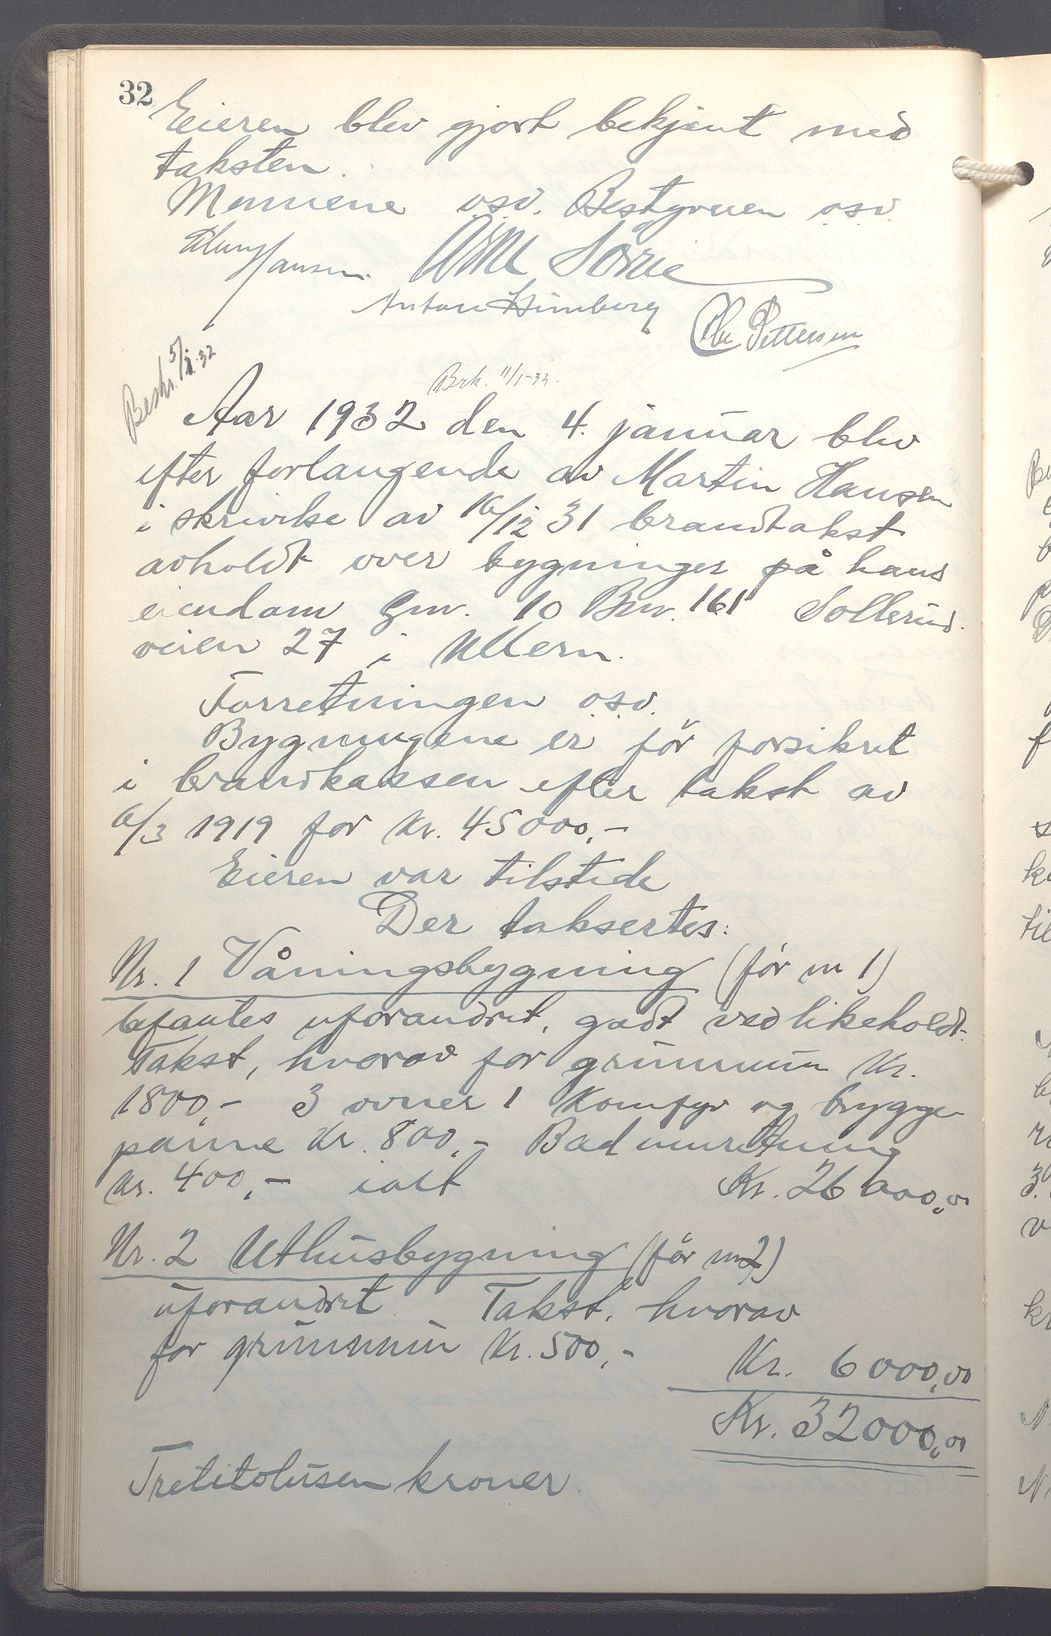 32
Eieren blev gjort bekjent med
taksten.
Mennene osv. Bestyreren osv.
Hansen.
Anton
Pettersen
Beskr. 5/1-32
11/1-32.
Aar 1932 den 4. januar blev
efter forlangende av Martin Hansen
i skrivelse av 16/12 31 brandtakst
avholdt over bygninger på hans
eiendom Gnr. 10 Bnr. 161 Sollerud-
veien 27 i Ullern.
Forretningen osv.
Bygningene er før forsikret
i brandkassen efter takst av
6/3 1919 for Kr. 45000,-
Eieren var tilstede
Der taksertes:
Nr. 1 Våningsbygning (før nr 1)
befantes uforandret, godt vedlikeholdt.
Takst, hvorav for grunnmur Kr.
1800,- 3 ovner 1 Komfyr og brygge-
panne Kr. 800,- Badinnretning
Kr. 400,- ialt Kr. 26000,00
Nr. 2 Uthusbygning (før nr 2)
uforandret Takst, hvorav
for grunnmur Kr. 500,-
Kr. 6000,00
Kr. 32000,00
Trettitotusen kroner.